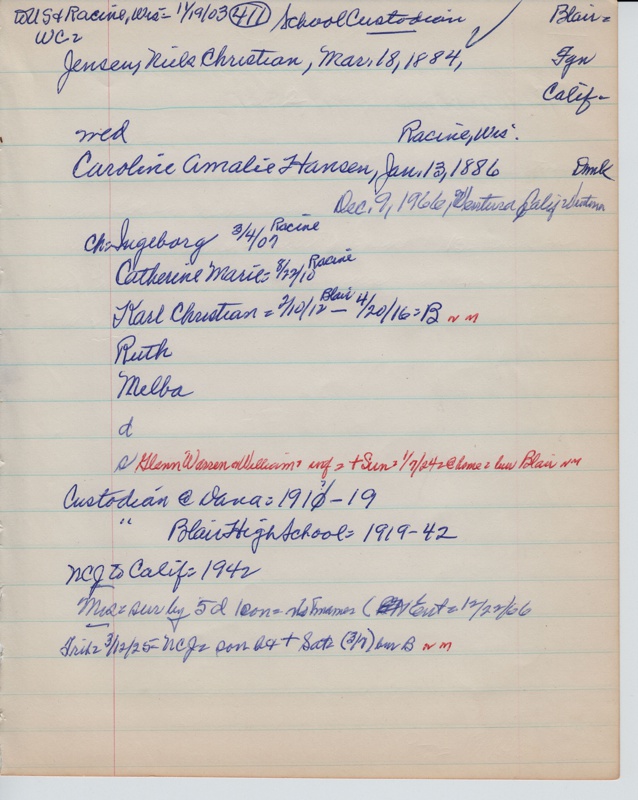 to US & Racine, Wis = 11/19/03 (411) / School Custodian Blair =
WC-2
Jensen, Niels Christian, Mar. 18, 1884, Fyn
Calif -
med Racine, Wis.
Caroline Amalie Hansen, Jan. 13, 1886 Dmk
Dec. 9, 1966, Ventura, Calif
ch = Ingeborg 3/4/07 Racine
Catherine Marie = 8/22/10 Racine
Karl Christian = 2/10/12 Blair - 4/20/16 = B ~ m
Ruth
Melba
d
s Glenn Warren William = inf = + Sun = 1/7/24 = @ home = bur Blair ~ m
Custodian @ Dana = 1910 - 19
" Blair High School = 1919 - 42
NCJ to Calif = 1942
Mrs = sur by 5 d 1 son = no names ( Ent = 12/22/66
Trib = 3/12/25 = NCJ = son b4 + Sat = (3/7) bur B ~ m